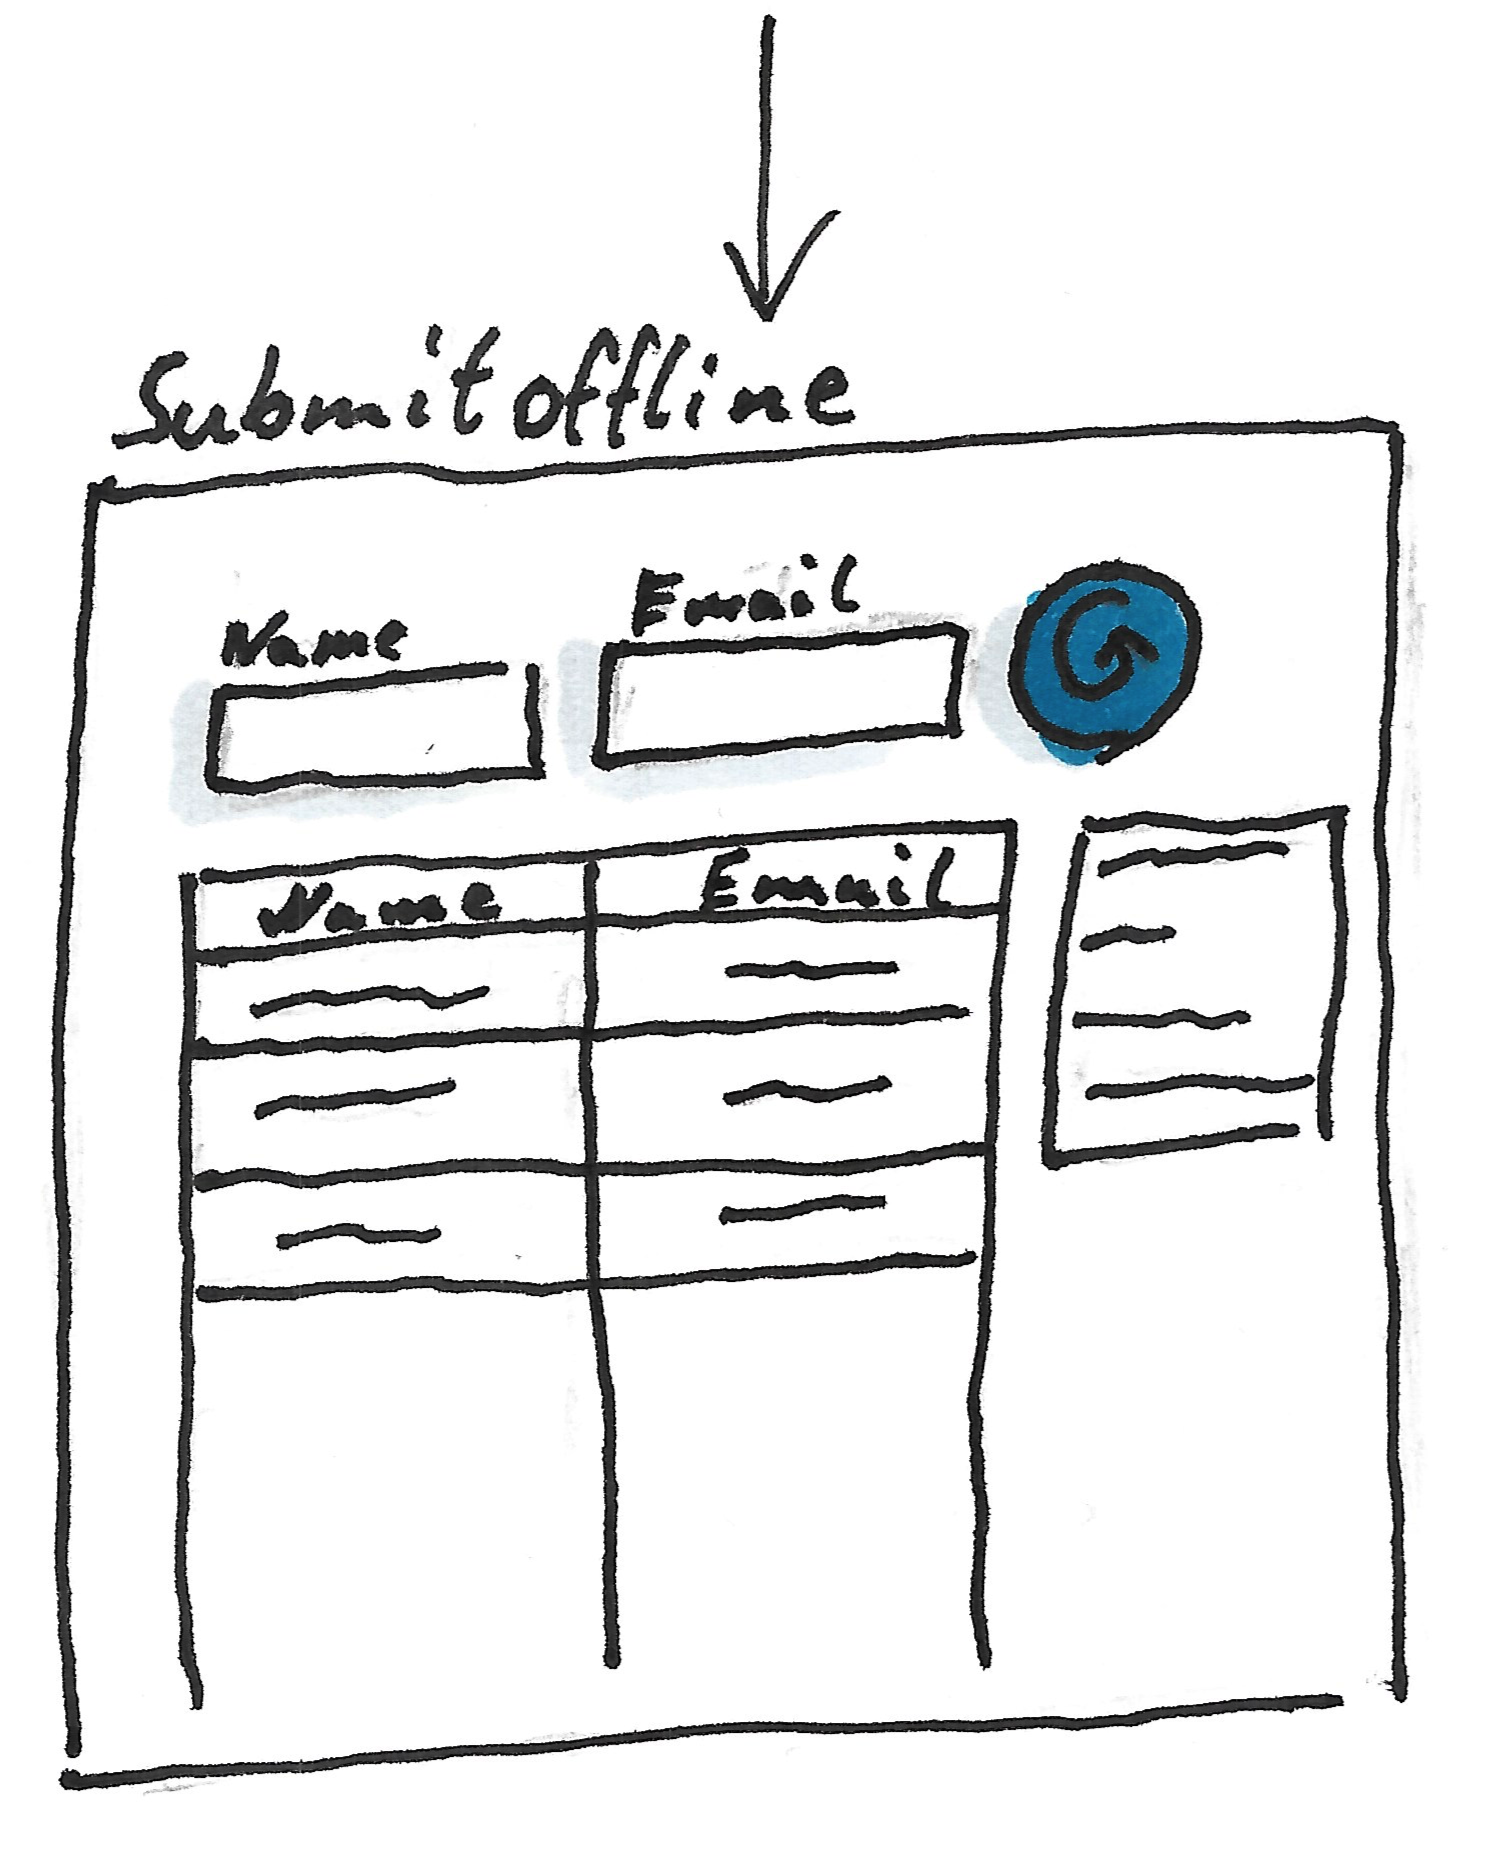 Submit offline
Name Email
Name Email